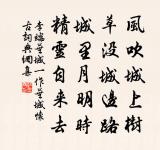 風吹城上樹
草沒城邊路
城里月明時
精靈自來去
李端蕪城一作蕪城懷
古詞典網集